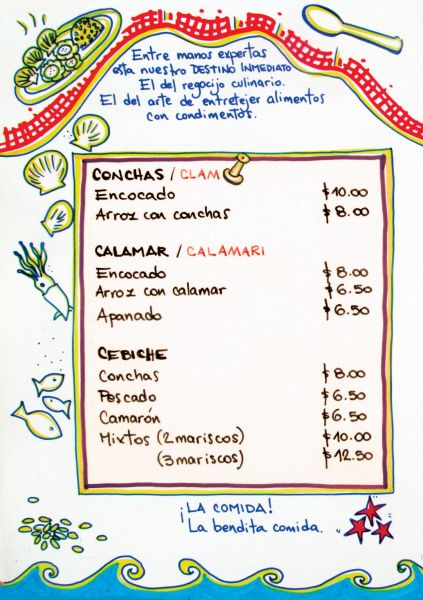 Entre manos expertas
esta nuestro DESTINO INMEDIATO
El del regocijo culinario.
El del arte de entretejer alimentos
con condimentos.
CONCHAS / CLAM
Encocado $10.00
Arroz con conchas $8.00
CALAMAR / CALAMARI
Encocado $8.00
Arroz con calamar $6.50
Apanado $6.50
CEBICHE
Conchas $8.00
Pescado $6.50
Camarón $6.50
Mixtos (2 mariscos) $10.00
(3 mariscos) $12.50
¡LA COMIDA!
La bendita comida.